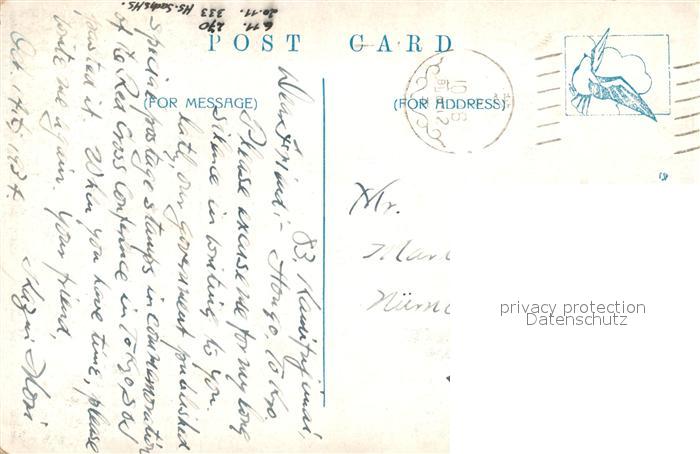 6.11. 290
20.11. 333
Hs. Sachs Hs.
POST CARD
(FOR MESSAGE)
(FOR ADDRESS)
83
Hongo Tokyo.
Dear Friend:-
Please excuse me for my long
silence in writing to you.
Lately our government published
special postage stamps in commemoration
of the Red Cross Conference in Tokyo so I
posted it. When you have time, please
write me again. Your friend,
Oct. 1934.
Mr.
privacy protection
Datenschutz